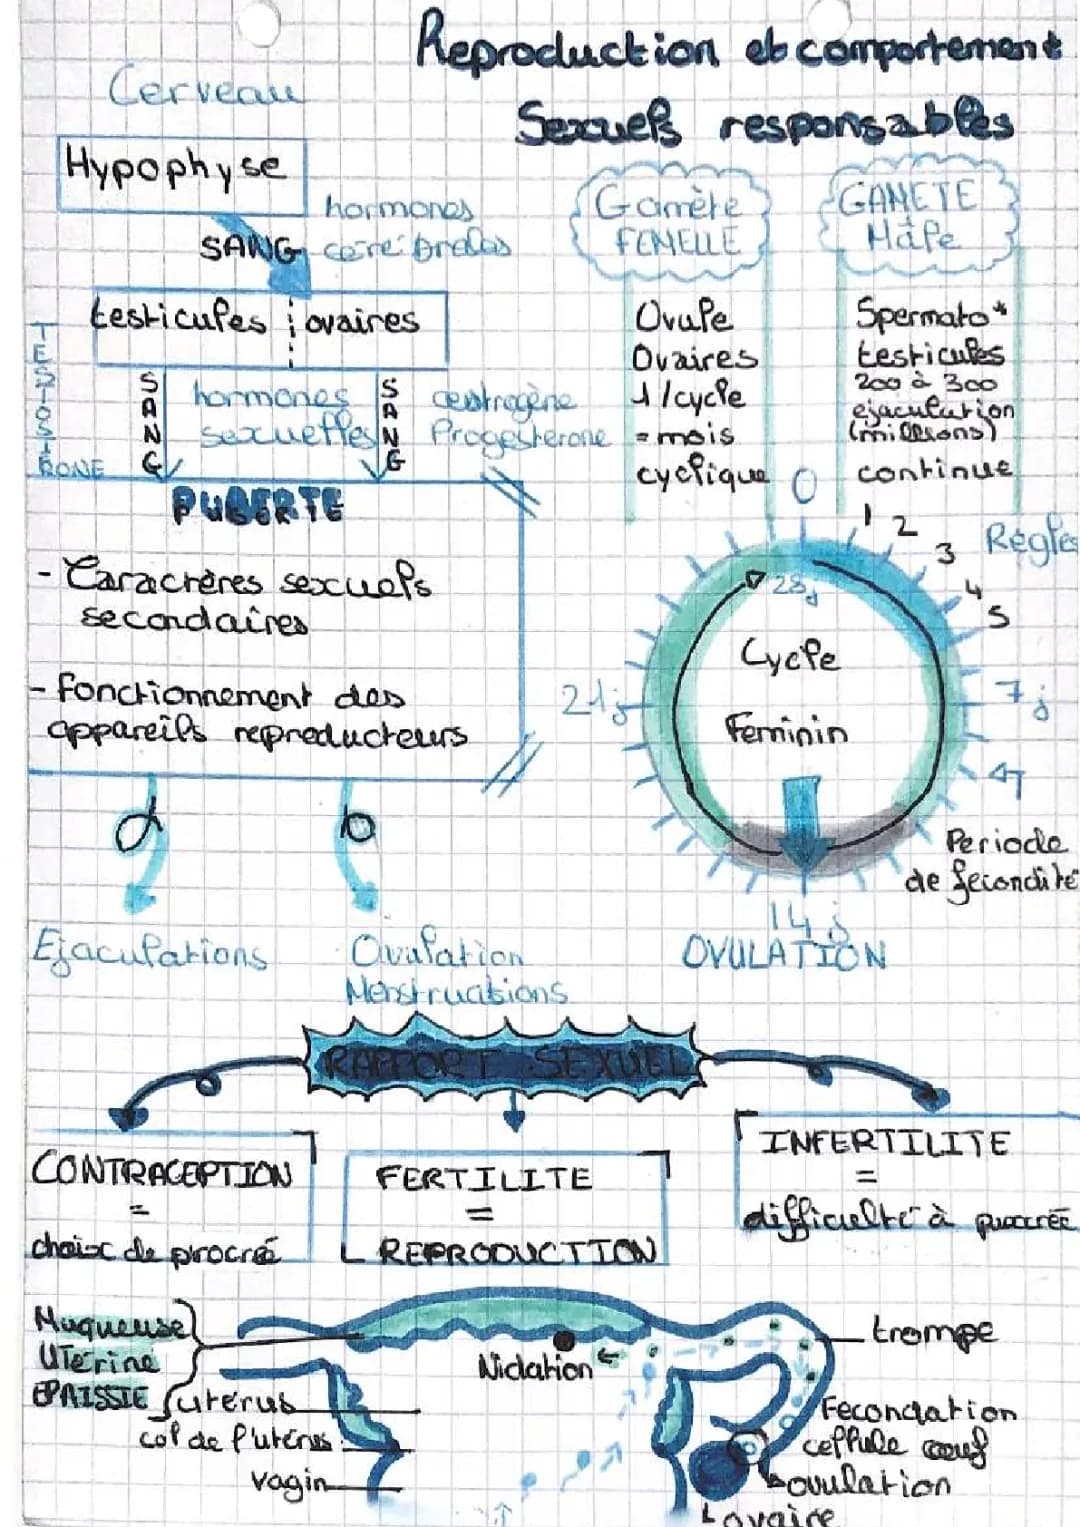 Reproduction et comportement
Sexuels responsables
Cerveau
Hypophyse
hormones
cérébrales
SANG
testicules ovaires
TESTOSTERONE
SANG
hormones
sexuelles
SANG
œstrogène
Progesterone
PUBERTE
- Caractères sexuels
secondaires
- fonctionnement des
appareils reproducteurs
Ejaculations
Ovulation
Menstruations
Gamète
FEMELLE
Ovule
Ovaires
1/cycle
= mois
cyclique
GAMETE
Mâle
Spermato*
testicules
200 à 300
ejaculation
(millions)
continue
0
1
2
3
4
5
Règles
28j
7j
21j
Cycle
Feminin
Periode
de fecondité
14j
OVULATION
RAPPORT SEXUEL
CONTRACEPTION
=
choix de procréé
FERTILITE
=
REPRODUCTION
INFERTILITE
=
difficulté à procréé
Muqueuse
UTérine
EPAISSIE
utérus
col de l'utérus
vagin
Nidation
trompe
Fecondation
cellule oeuf
ovulation
ovaire